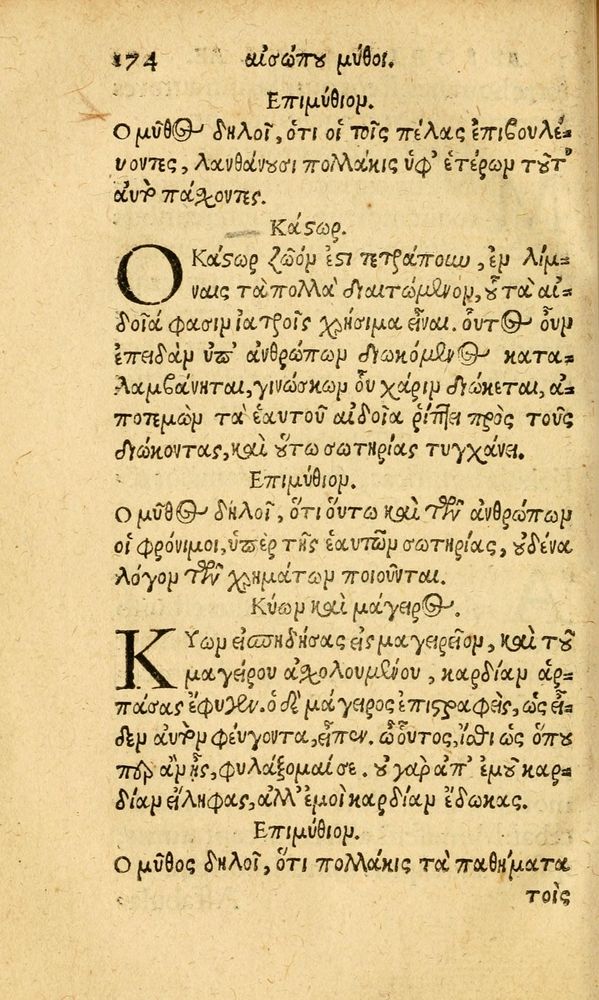 174 αἰσώπου μῦθοι.
Ἐπιμύθιον.
Ο μῦθος δηλοῖ, ὅτι οἱ τοῖς πέλας ἐπιβουλέυ-
οντες, λανθάνουσι πολλάκις ὑφ' ἑτέρων τοῦτ'
αὐτὸ πάσχοντες.
Κάστωρ.
Ο Κάστωρ ζῶόν ἐστι τετράπουν, ἐν λίμ-
ναις τὰ πολλὰ διαιτώμενον, οὗ τὰ αἰ-
δοῖά φασιν ἰατροῖς χρήσιμα εἶναι. οὗτος οὖν
ἐπειδὰν ὑπ' ἀνθρώπων διωκόμενος κατα-
λαμβάνηται, γινώσκων οὗ χάριν διώκεται, ἀ-
ποτεμὼν τὰ ἑαυτοῦ αἰδοῖα ῥίπτει πρὸς τοὺς
διώκοντας, καὶ οὕτω σωτηρίας τυγχάνει.
Ἐπιμύθιον.
Ο μῦθος δηλοῖ, ὅτι ὅυτω καὶ τῶν ἀνθρώπων
οἱ φρόνιμοι, ὑπὲρ τῆς ἑαυτῶν σωτηρίας, οὐδένα
λόγον τῶν χρημάτων ποιοῦνται.
Κύων καὶ μάγειρος.
Κύων εἰσπηδήσας εἰς μαγειρεῖον, καὶ τοῦ
μαγείρου ἀσχολουμένου, καρδίαν ἁρ-
πάσας ἔφυγεν. ὁ δὲ μάγειρος ἐπιστραφεὶς, ὡς εἶ-
δεν αὐτὸν φέυγοντα, εἶπεν. ὦ οὗτος, ἴσθι ὡς ὅπου
περ ἂν ᾖς, φυλάξομαί σε. οὐ γὰρ ἀπ' ἐμοῦ καρ-
δίαν εἴληφας, ἀλλ' ἐμοὶ καρδίαν ἔδωκας.
Ἐπιμύθιον.
Ο μῦθος δηλοῖ, ὅτι πολλάκις τὰ παθήματα
τοῖς